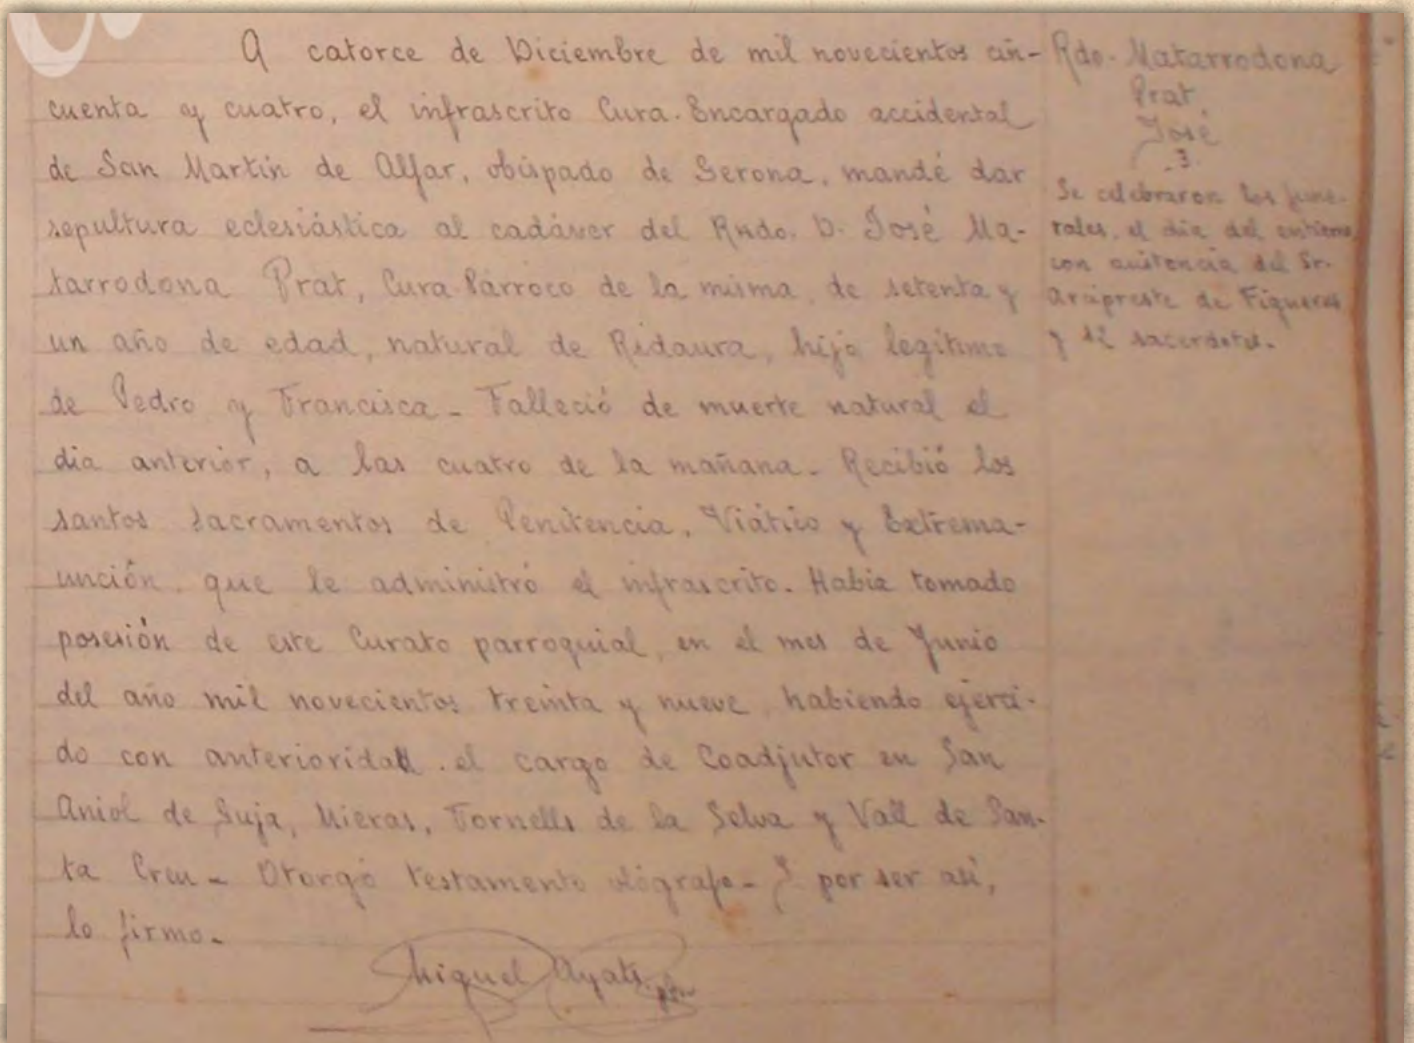 A catorce de Diciembre de mil novecientos cin-
cuenta y cuatro, el infrascrito Cura-Encargado accidental
de San Martín de Alfar, obispado de Gerona, mandé dar
sepultura eclesiástica al cadáver del Rndo. D. José Ma-
tarrodona Prat, Cura-Párroco de la misma, de setenta y
un año de edad, natural de Ridaura, hijo legítimo
de Pedro y Francisca - Falleció de muerte natural el
dia anterior, a las cuatro de la mañana - Recibió los
santos sacramentos de Penitencia, Viático y Extrema-
unción, que le administró el infrascrito. Habia tomado
posesión de este Curato parroquial, en el mes de Junio
del año mil novecientos treinta y nueve, habiendo ejerci-
do con anterioridad el cargo de Coadjutor en San
Aniol de Guja, Mieras, Fornells de la Selva y Vall de San-
ta Creu - Otorgó testamento ológrafo - Y por ser así,
lo firmo -
Miguel Ayats, pbro
Rdo. Matarrodona
Prat,
José
3
Se celebraron los fune-
rales, el dia del entierro
con asistencia del Sr.
Arcipreste de Figueras
y sacerdotes.